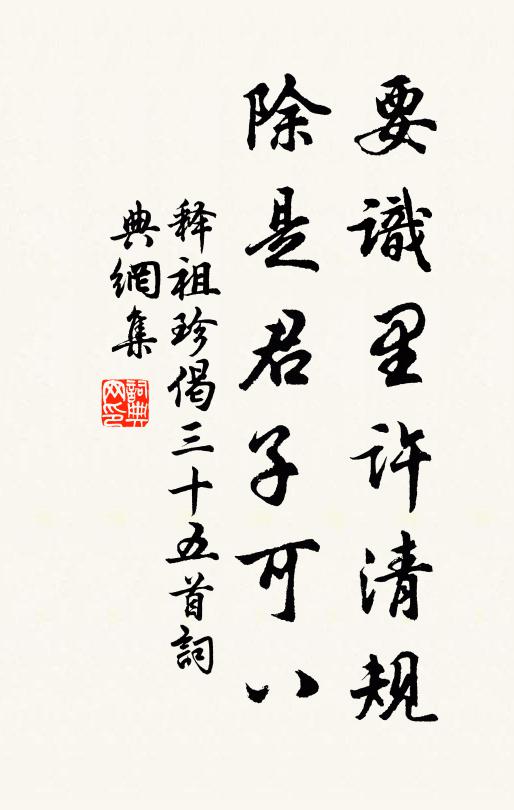 要識里許清規
除是君子可八
释祖珍偈三十五首詞
典網集
詞典
网印